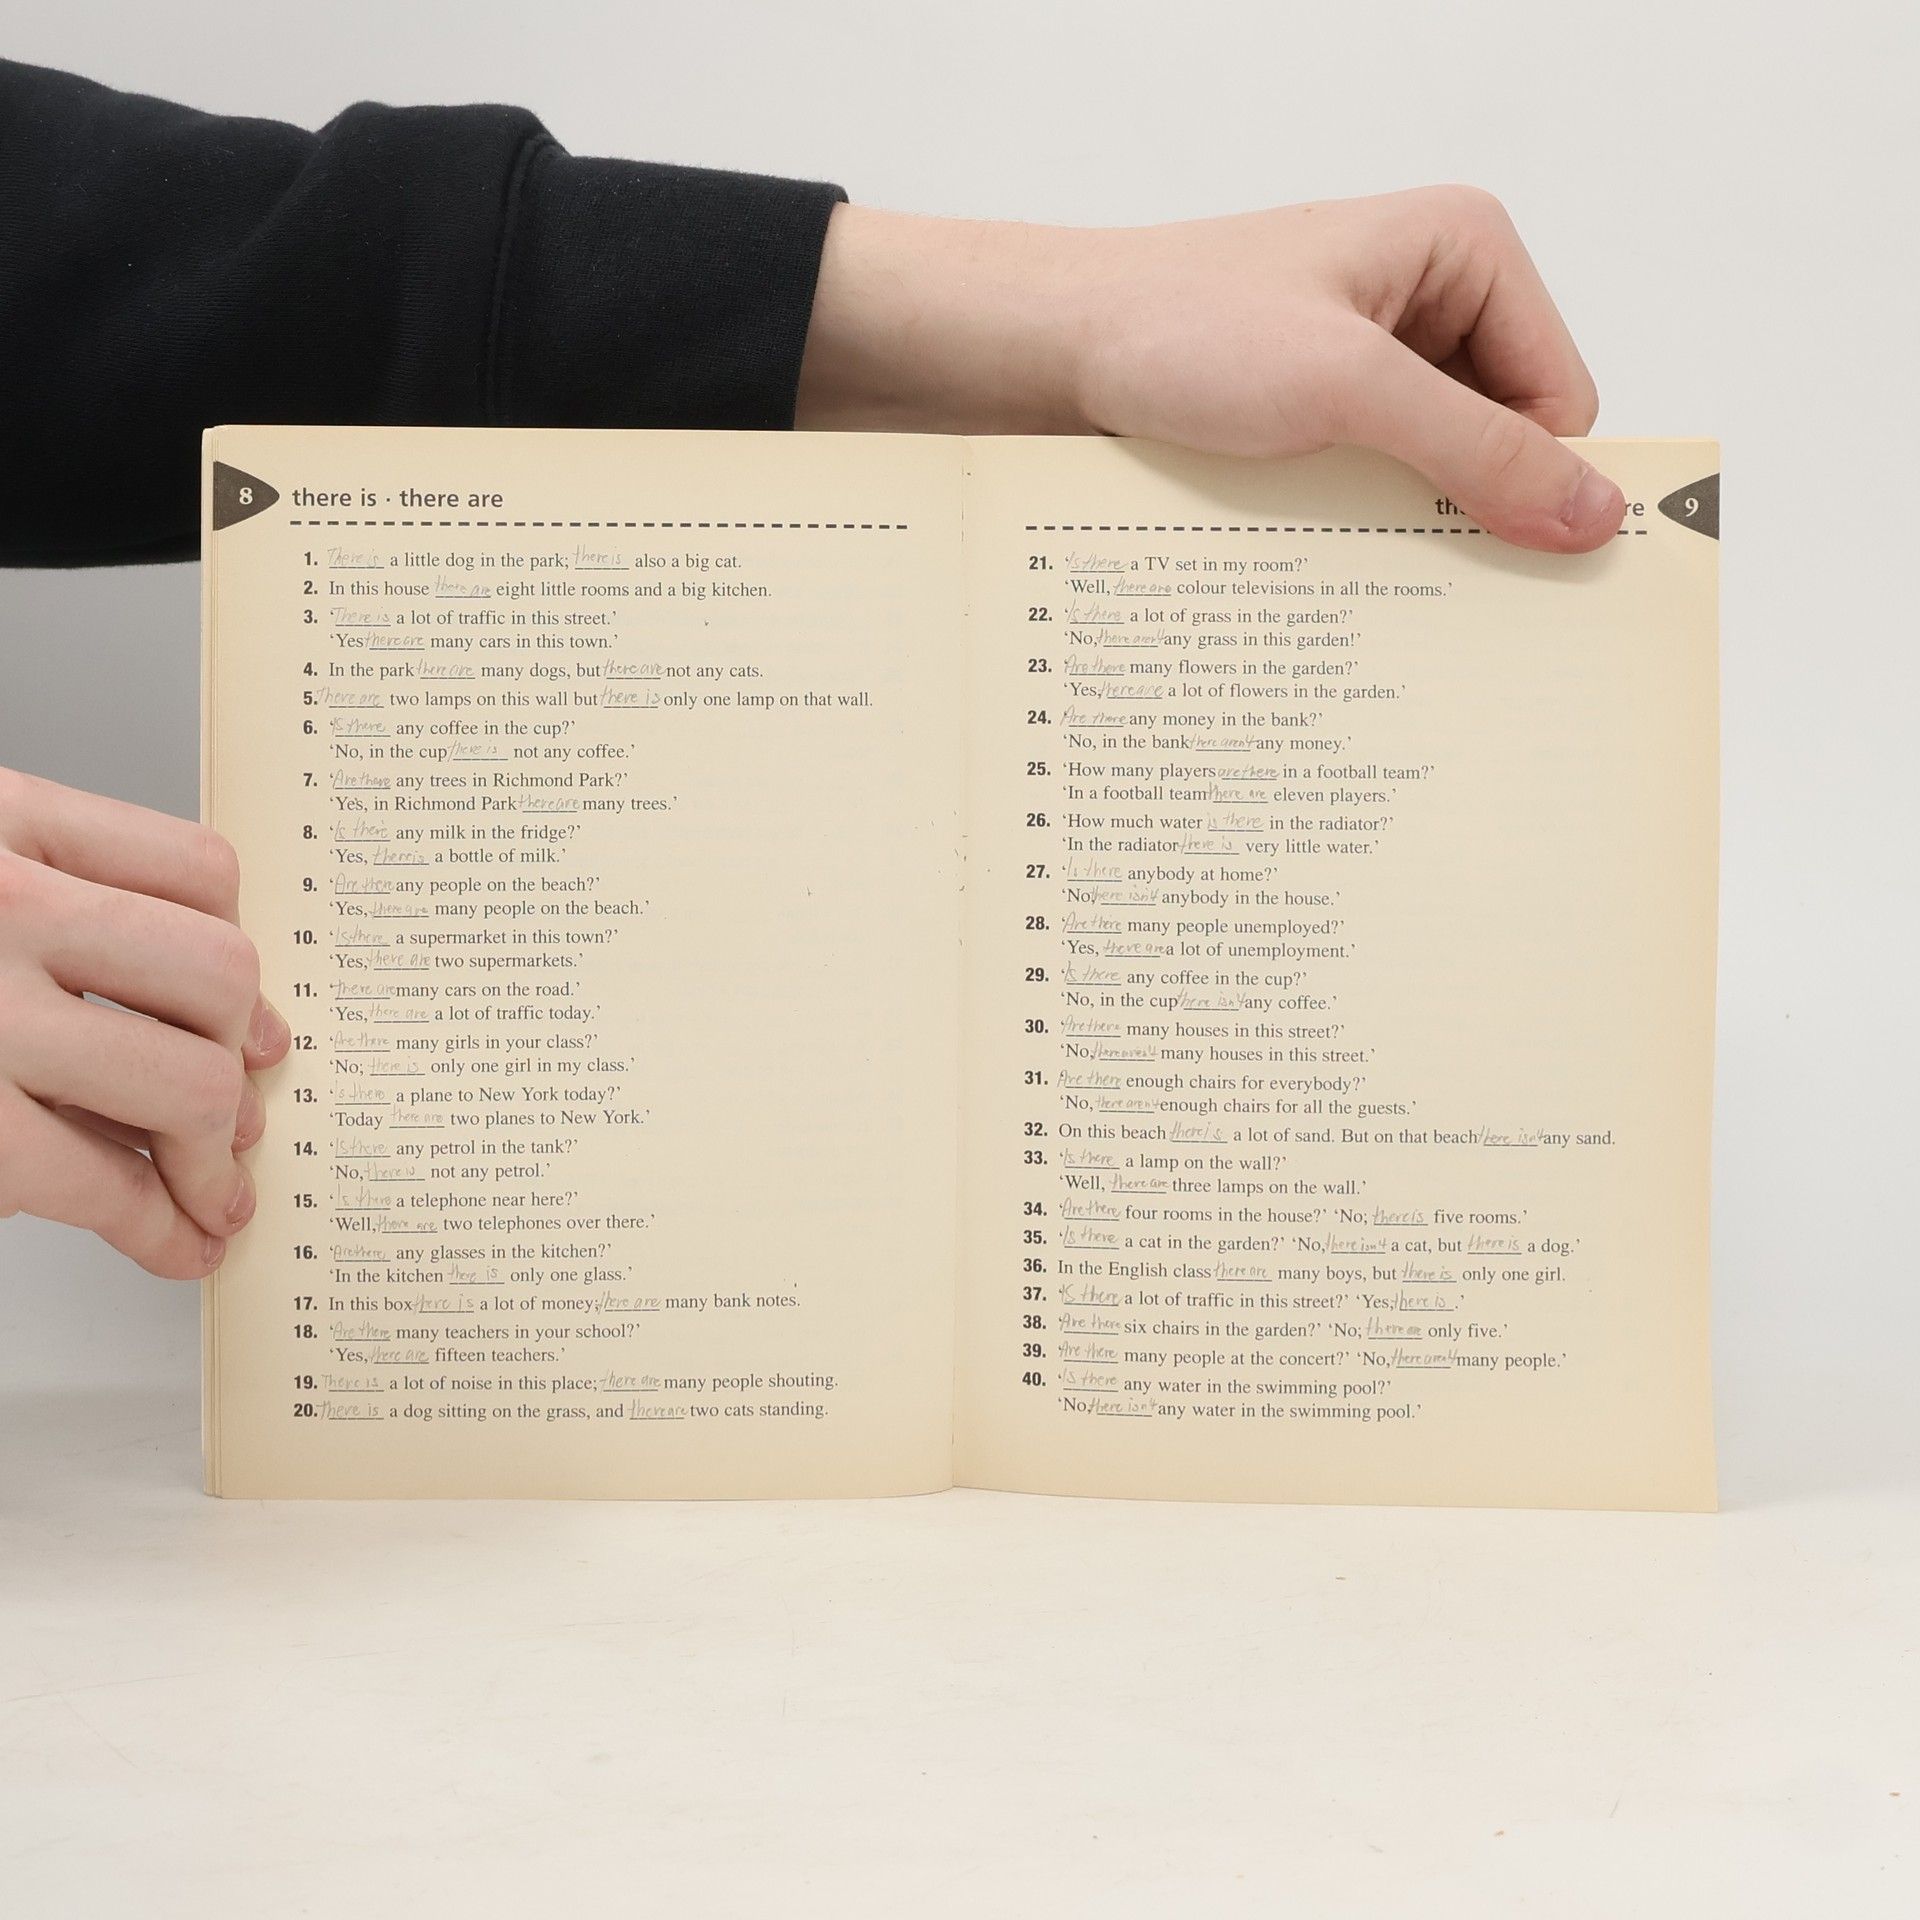 8 there is · there are
1. There is a little dog in the park; there is also a big cat.
2. In this house there are eight little rooms and a big kitchen.
3. ‘There is a lot of traffic in this street.’
‘Yes there are many cars in this town.’
4. In the park there are many dogs, but there are not any cats.
5. There are two lamps on this wall but there is only one lamp on that wall.
6. ‘Is there any coffee in the cup?’
‘No, in the cup there is not any coffee.’
7. ‘Are there any trees in Richmond Park?’
‘Yes, in Richmond Park there are many trees.’
8. ‘Is there any milk in the fridge?’
‘Yes, there is a bottle of milk.’
9. ‘Are there any people on the beach?’
‘Yes, there are many people on the beach.’
10. ‘Is there a supermarket in this town?’
‘Yes, there are two supermarkets.’
11. ‘There are many cars on the road.’
‘Yes, there are a lot of traffic today.’
12. ‘Are there many girls in your class?’
‘No; there is only one girl in my class.’
13. ‘Is there a plane to New York today?’
‘Today there are two planes to New York.’
14. ‘Is there any petrol in the tank?’
‘No, there is not any petrol.’
15. ‘Is there a telephone near here?’
‘Well, there are two telephones over there.’
16. ‘Are there any glasses in the kitchen?’
‘In the kitchen there is only one glass.’
17. In this box there is a lot of money; there are many bank notes.
18. ‘Are there many teachers in your school?’
‘Yes, there are fifteen teachers.’
19. There is a lot of noise in this place; there are many people shouting.
20. There is a dog sitting on the grass, and there are two cats standing.
9
21. ‘Is there a TV set in my room?’
‘Well, there are colour televisions in all the rooms.’
22. ‘Is there a lot of grass in the garden?’
‘No, there aren't any grass in this garden!’
23. ‘Are there many flowers in the garden?’
‘Yes, there are a lot of flowers in the garden.’
24. ‘Are there any money in the bank?’
‘No, in the bank there aren't any money.’
25. ‘How many players are there in a football team?’
‘In a football team there are eleven players.’
26. ‘How much water is there in the radiator?’
‘In the radiator there is very little water.’
27. ‘Is there anybody at home?’
‘No there isn't anybody in the house.’
28. ‘Are there many people unemployed?’
‘Yes, there are a lot of unemployment.’
29. ‘Is there any coffee in the cup?’
‘No, in the cup there isn't any coffee.’
30. ‘Are there many houses in this street?’
‘No, there aren't many houses in this street.’
31. ‘Are there enough chairs for everybody?’
‘No, there aren't enough chairs for all the guests.’
32. On this beach there is a lot of sand. But on that beach there isn't any sand.
33. ‘Is there a lamp on the wall?’
‘Well, there are three lamps on the wall.’
34. ‘Are there four rooms in the house?’ ‘No; there is five rooms.’
35. ‘Is there a cat in the garden?’ ‘No, there isn't a cat, but there is a dog.’
36. In the English class there are many boys, but there is only one girl.
37. ‘Is there a lot of traffic in this street?’ ‘Yes, there is.’
38. ‘Are there six chairs in the garden?’ ‘No; there are only five.’
39. ‘Are there many people at the concert?’ ‘No, there aren't many people.’
40. ‘Is there any water in the swimming pool?’
‘No, there isn't any water in the swimming pool.’